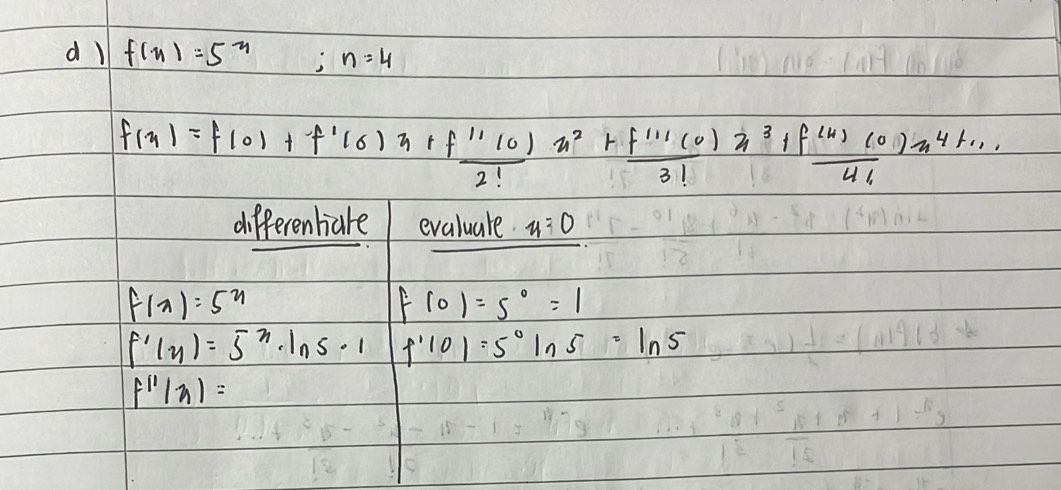 d) f(x) = 5^x ; n = 4
f(x) = f(0) + f'(0)x + f''(0)/2! x² + f'''(0)/3! x³ + f^(4)(0)/4! x⁴ + ...
differentiate. evaluate x = 0
f(x) = 5^x f(0) = 5⁰ = 1
f'(x) = 5^x · ln 5 · 1 f'(0) = 5⁰ ln 5 = ln 5
f''(x) =